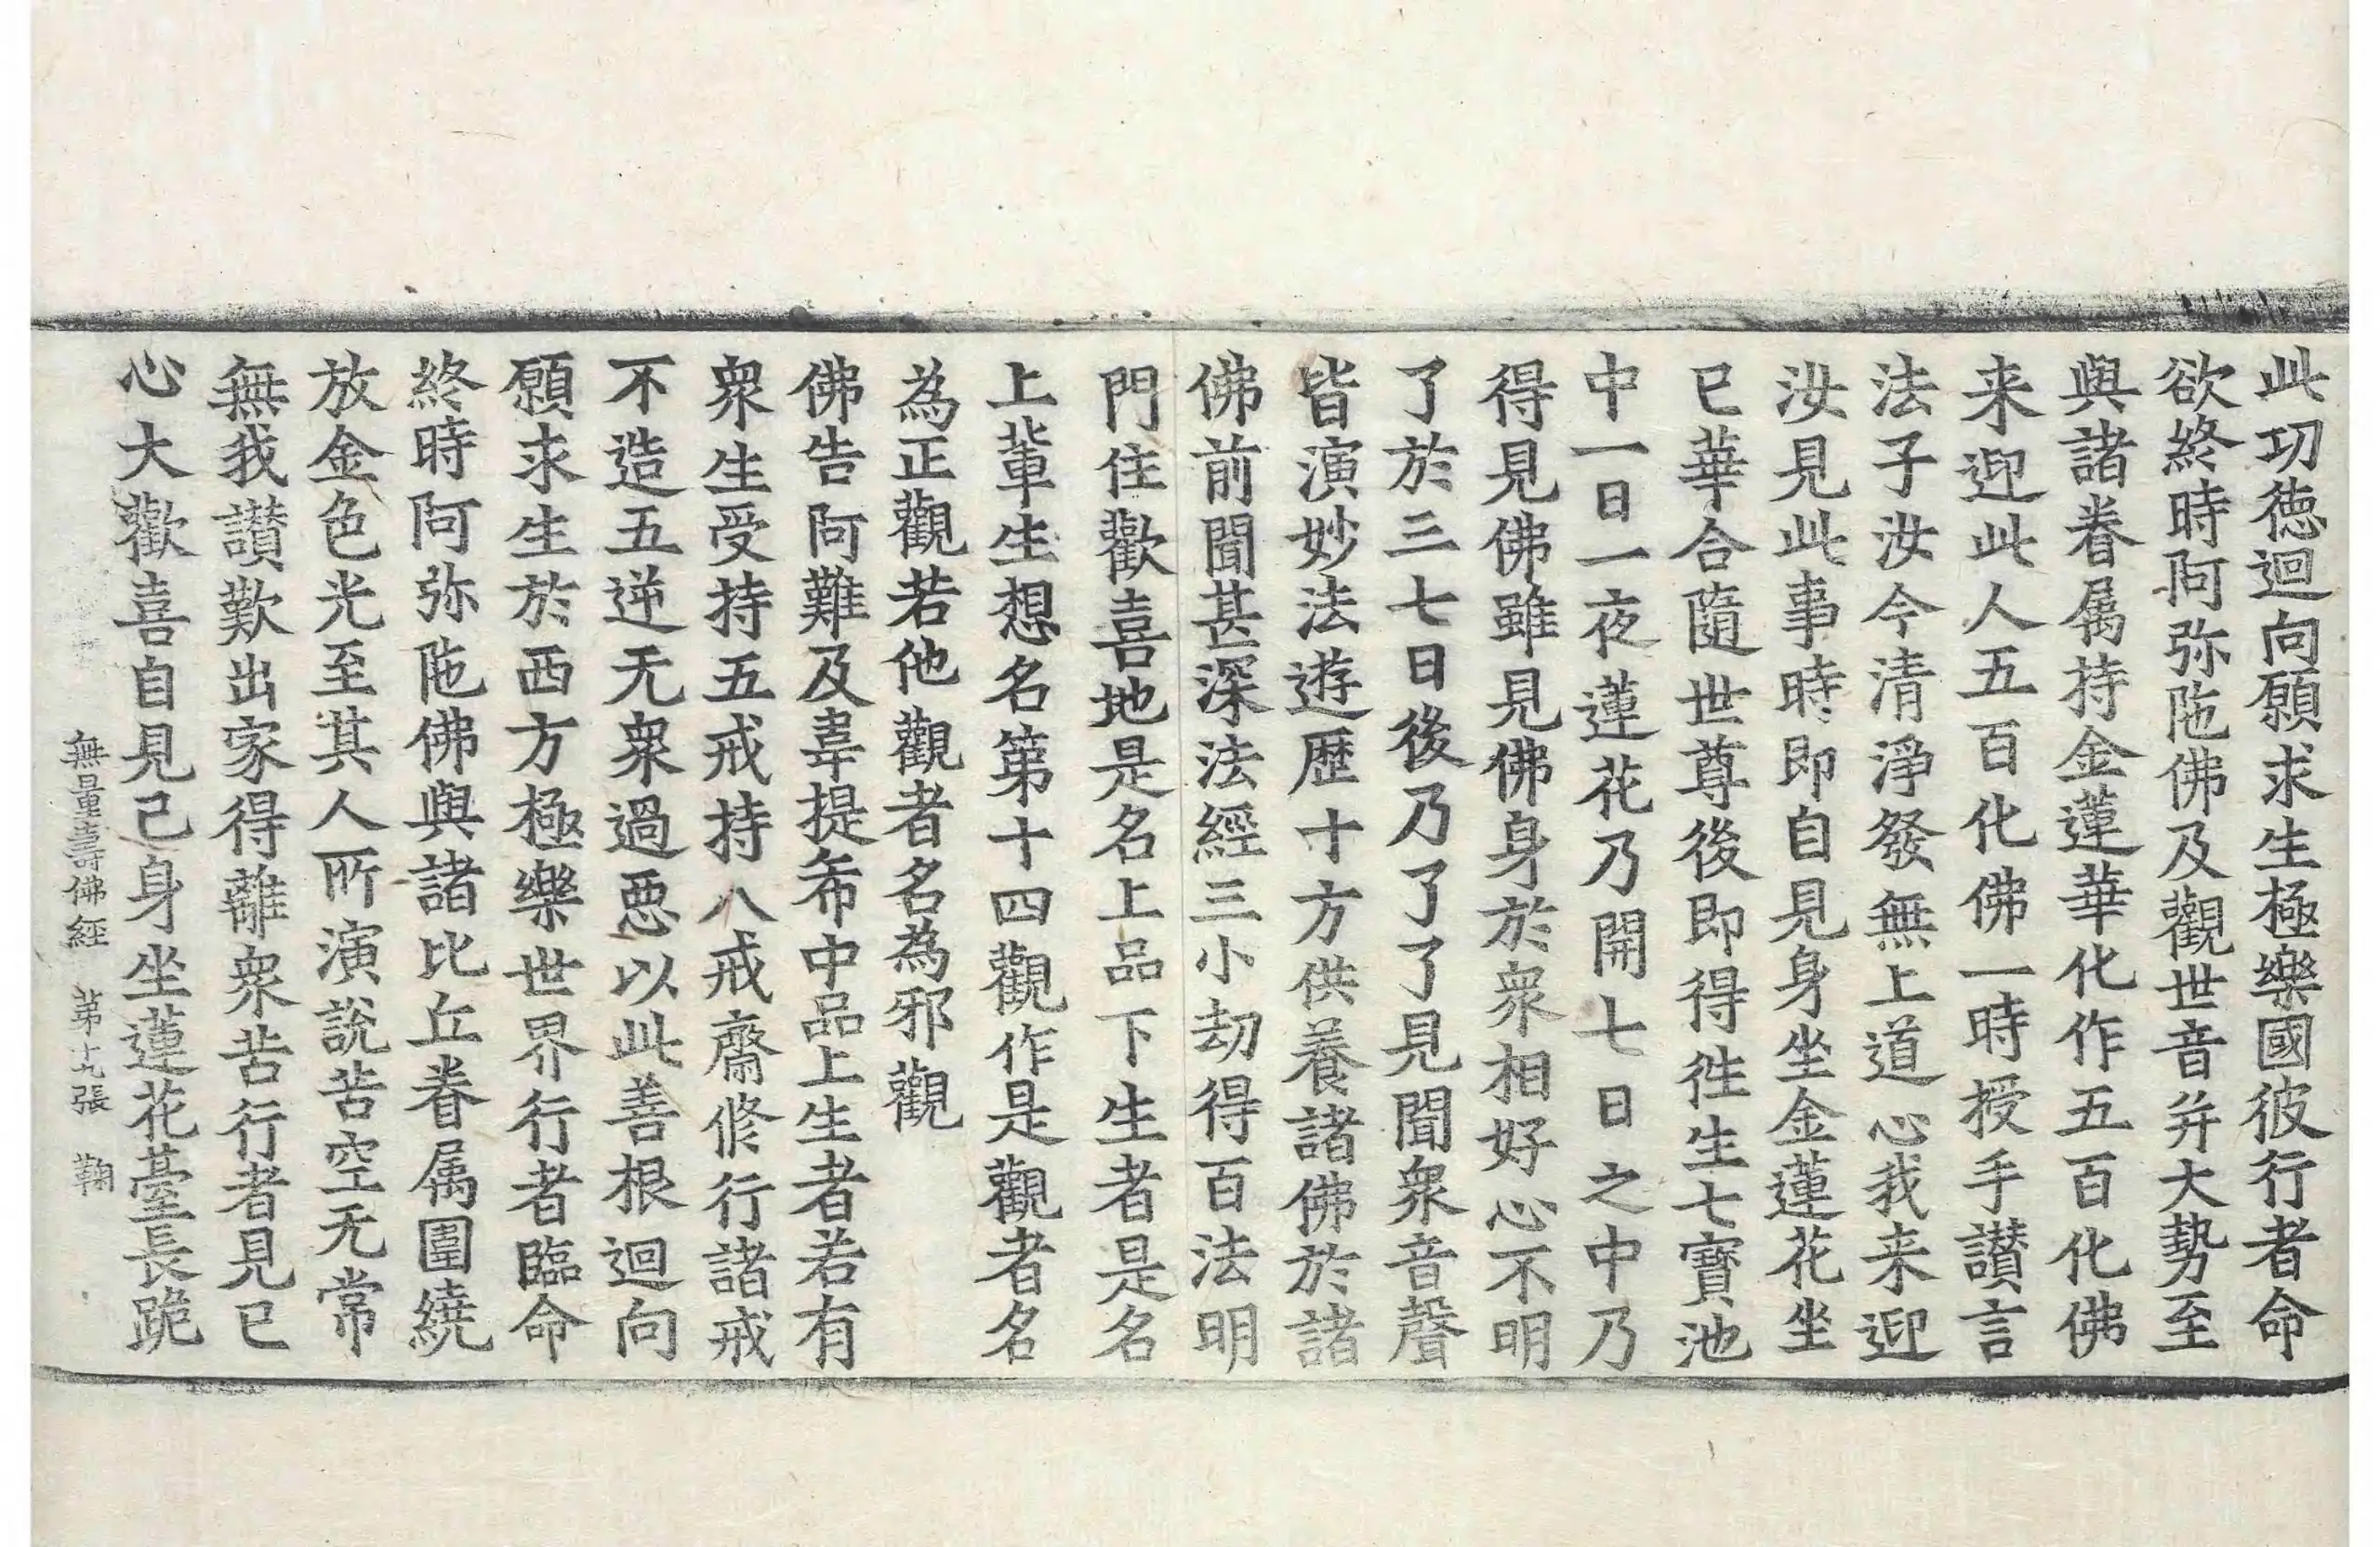 此功徳迴向願求生極樂國彼行者命
欲終時阿弥陁佛及觀世音并大勢至
與諸眷属持金蓮華化作五百化佛
来迎此人五百化佛一時授手讃言
法子汝今清淨發無上道心我来迎
汝見此事時即自見身坐金蓮花坐
已華合隨世尊後即得徃生七寶池
中一日一夜蓮花乃開七日之中乃
得見佛雖見佛身於衆相好心不明
了於三七日後乃了了見聞衆音聲
皆演妙法遊歷十方供養諸佛於諸
佛前聞甚深法經三小劫得百法明
門住歡喜地是名上品下生者是名
上輩生想名第十四觀作是觀者名
為正觀若他觀者名為邪觀
佛告阿難及韋提希中品上生者若有
衆生受持五戒持八戒齋修行諸戒
不造五逆无衆過惡以此善根迴向
願求生於西方極樂世界行者臨命
終時阿弥陁佛與諸比丘眷属圍繞
放金色光至其人所演說苦空无常
無我讃歎出家得離衆苦行者見已
心大歡喜自見己身坐蓮花臺長跪
無量壽佛經 第十九張 鞠